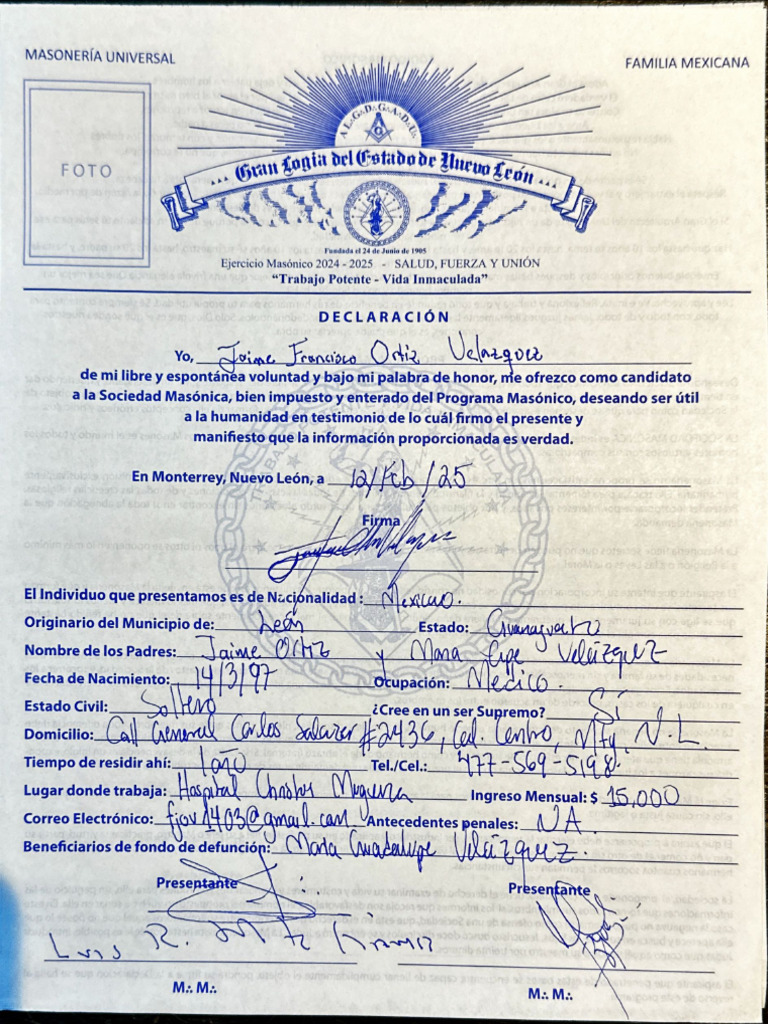 MASONERÍA UNIVERSAL
FAMILIA MEXICANA
FOTO
A∴L∴G∴D∴G∴A∴D∴U∴
Gran Logia del Estado de Nuevo León
Fundada el 24 de Junio de 1905
Ejercicio Masónico 2024 - 2025 - SALUD, FUERZA Y UNIÓN
“Trabajo Potente - Vida Inmaculada”
DECLARACIÓN
Yo, Jaime Francisco Ortiz Velazquez
de mi libre y espontánea voluntad y bajo mi palabra de honor, me ofrezco como candidato
a la Sociedad Masónica, bien impuesto y enterado del Programa Masónico, deseando ser útil
a la humanidad en testimonio de lo cuál firmo el presente y
manifiesto que la información proporcionada es verdad.
En Monterrey, Nuevo León, a 12/Feb/25
Firma
El Individuo que presentamos es de Nacionalidad: Mexicano.
Originario del Municipio de: León Estado: Guanajuato
Nombre de los Padres: Jaime Ortiz y Maria Gpe Velázquez
Fecha de Nacimiento: 14/3/97 Ocupación: Medico.
Estado Civil: Soltero ¿Cree en un ser Supremo? Sí
Domicilio: Call General Carlos Salazar #2436, Col. Centro, Mty, N.L.
Tiempo de residir ahí: 1 año Tel./Cel.: 477-569-5198.
Lugar donde trabaja: Hospital Christus Muguerza Ingreso Mensual: $ 15,000
Correo Electrónico: fjov1403@gmail.com Antecedentes penales: NA.
Beneficiarios de fondo de defunción: Maria Guadalupe Velázquez.
Presentante Presentante
Luis R.
M∴ M∴ M∴ M∴